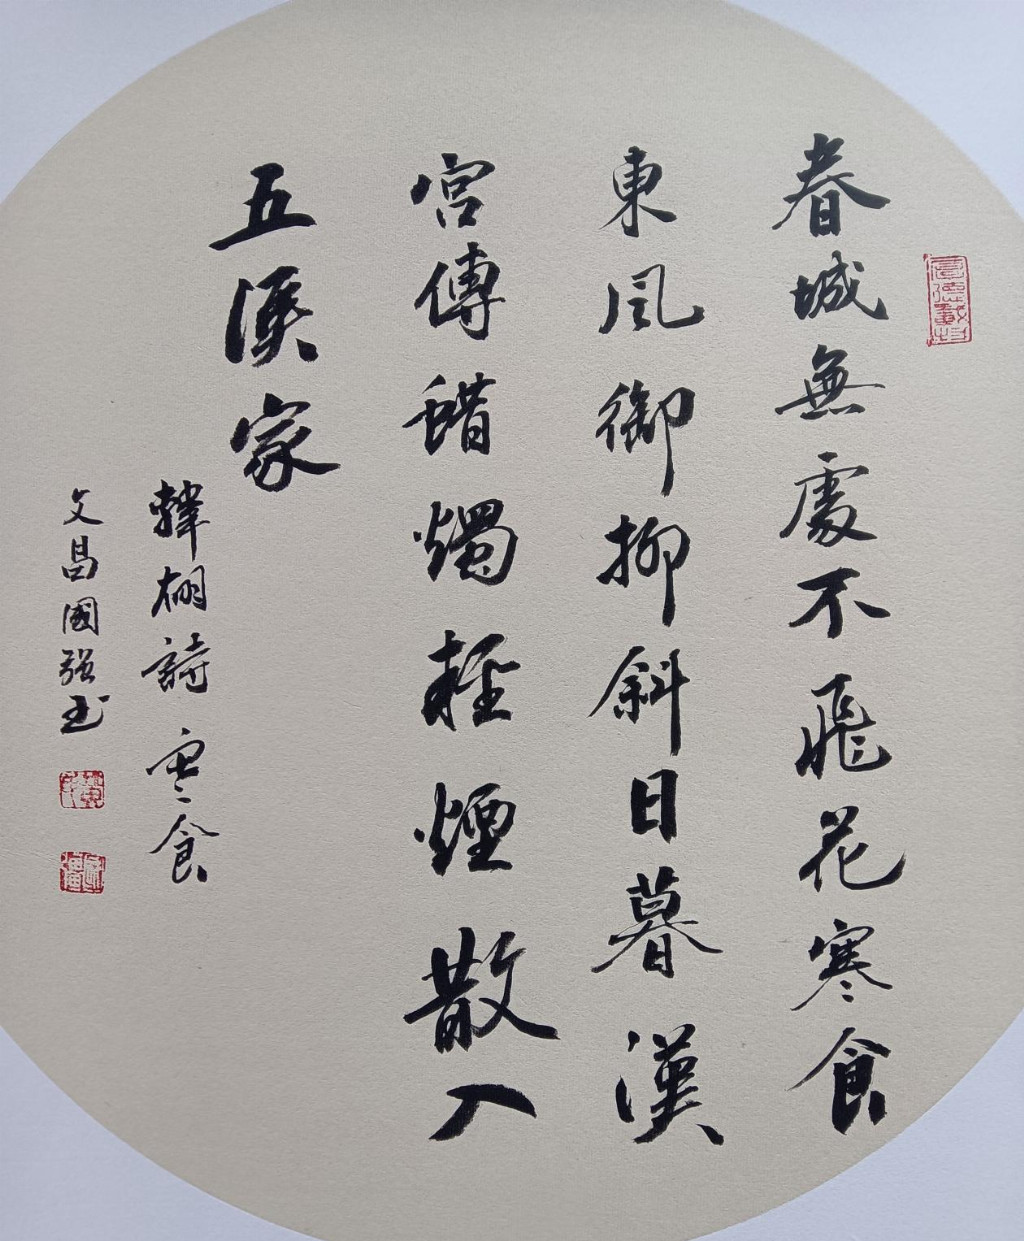 厚德載物
春城無處不飛花寒食
東風御柳斜日暮漢
宮傳蜡燭輕煙散入
五侯家
韓翃詩寒食
文昌國強书